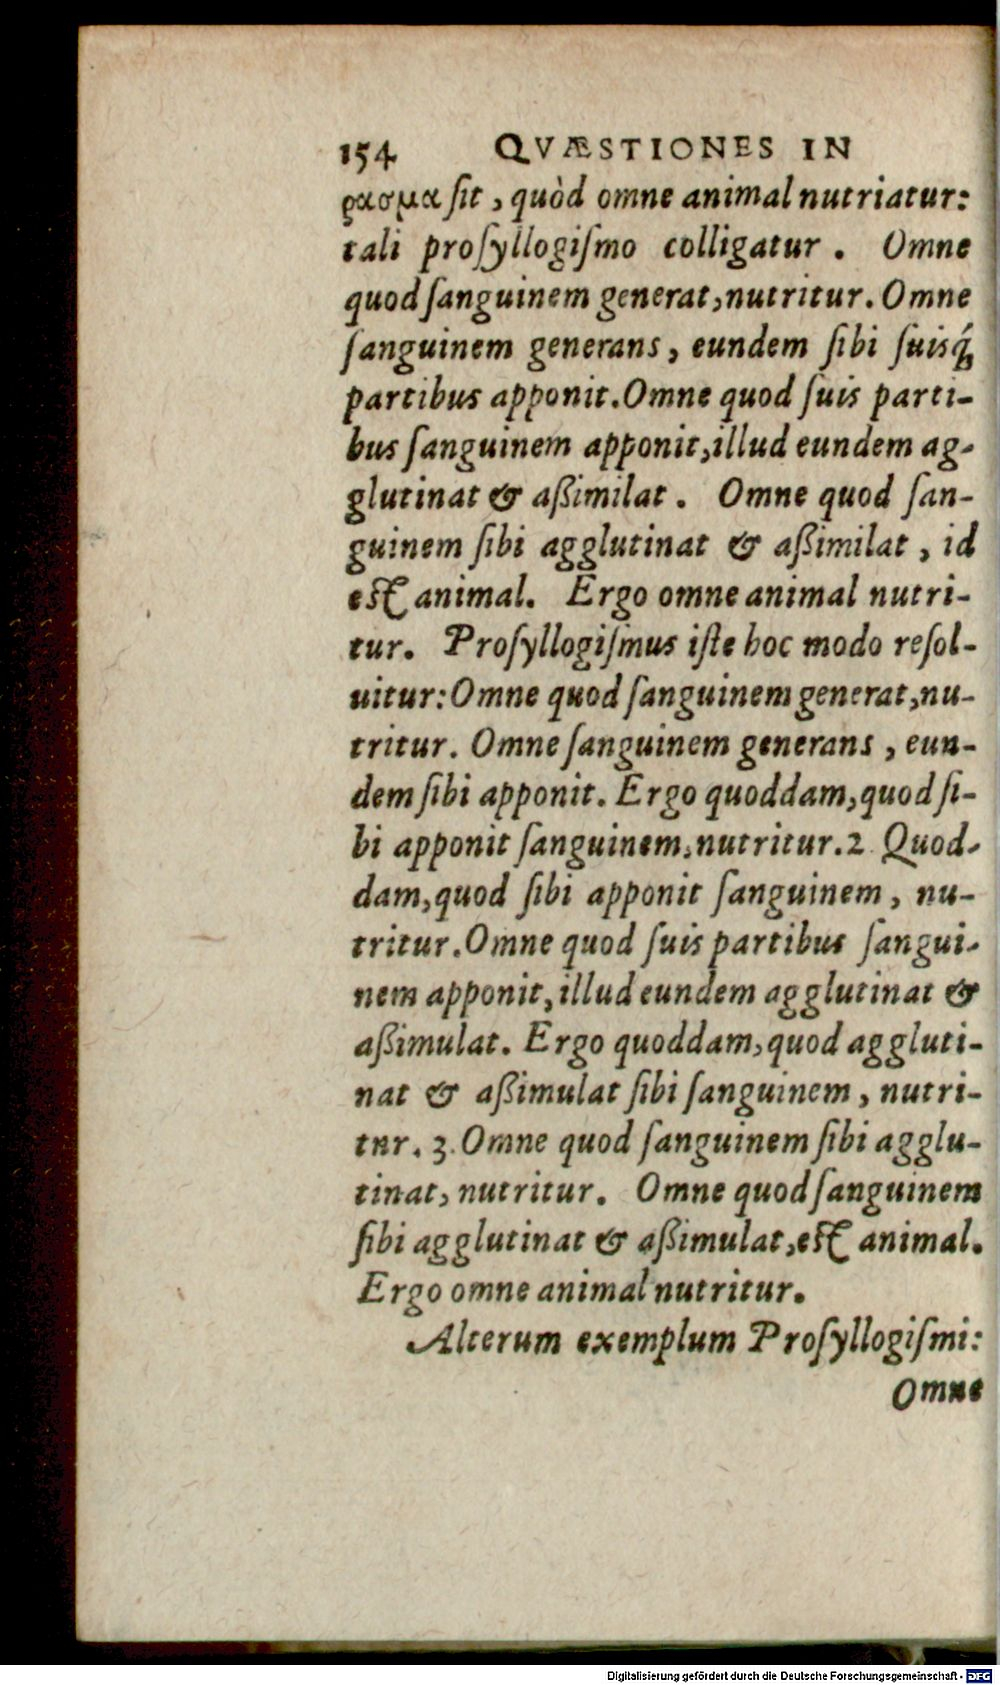 154 QVÆSTIONES IN
ρασμα ſit, quòd omne animal nutriatur:
tali proſyllogiſmo colligatur. Omne
quod ſanguinem generat, nutritur. Omne
ſanguinem generans, eundem ſibi ſuisq́;
partibus apponit. Omne quod ſuis parti-
bus ſanguinem apponit, illud eundem ag-
glutinat & aßimilat. Omne quod ſan-
guinem ſibi agglutinat & aßimilat, id
eſt animal. Ergo omne animal nutri-
tur. Proſyllogiſmus iſte hoc modo reſol-
uitur: Omne quod ſanguinem generat, nu-
tritur. Omne ſanguinem generans, eun-
dem ſibi apponit. Ergo quoddam, quod ſi-
bi apponit ſanguinem, nutritur. 2 Quod-
dam, quod ſibi apponit ſanguinem, nu-
tritur. Omne quod ſuis partibus ſangui-
nem apponit, illud eundem agglutinat &
aßimulat. Ergo quoddam, quod aggluti-
nat & aßimulat ſibi ſanguinem, nutri-
tnr. 3. Omne quod ſanguinem ſibi agglu-
tinat, nutritur. Omne quod ſanguinem
ſibi agglutinat & aßimulat, eſt animal.
Ergo omne animal nutritur.
Alterum exemplum Proſyllogiſmi:
Omne
Digitalisierung gefördert durch die Deutsche Forschungsgemeinschaft - DFG